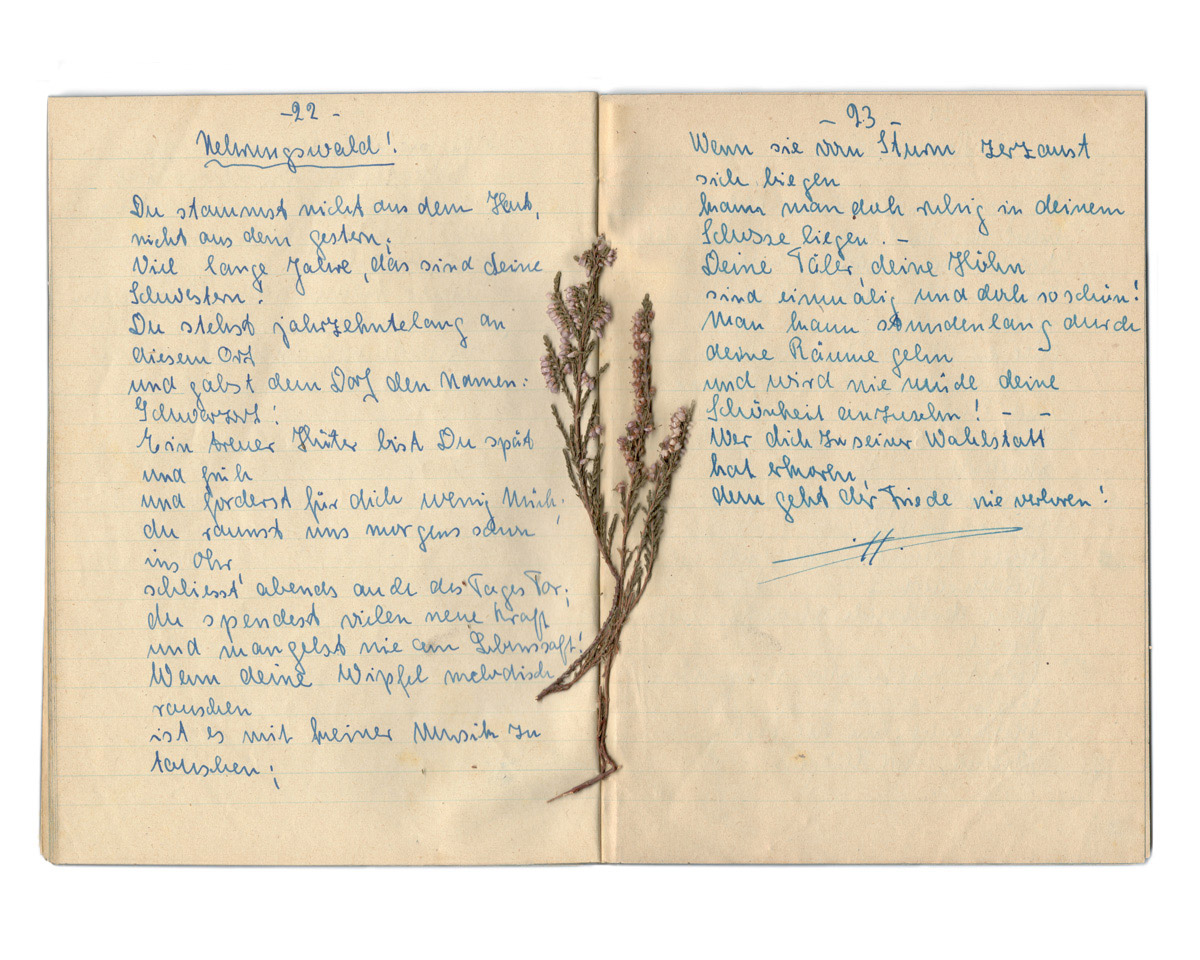 - 22 -
Nehrungswald!
Du stammst nicht aus dem Heut,
nicht aus dem gestern;
Viel lange Jahre, das sind deine
Schwestern.
Du stehst jahrzehntelang an
diesem Ort
und gabst dem Dorf den Namen:
Schwarzort!
Ein treuer Hüter bist Du spät
und früh
und forderst für dich wenig Müh;
du raunst uns morgens sann
ins Ohr
schliesst abends auch des Tages Tor;
du spendest vielen neue Kraft
und mangelst nie am Lebenssaft!
Wenn deine Wipfel melodisch
rauschen
ist es mit keiner Musik zu
tauschen;
- 23 -
Wenn sie vom Sturm zerzaust
sich biegen
kann man doch ruhig in deinem
Schosse liegen. -
Deine Täler, deine Höhn
sind einmalig und doch so schön!
Man kann stundenlang durch
deine Räume gehn
und wird nie müde deine
Schönheit anzusehn! - -
Wer dich zu seiner Wahlstatt
hat erkoren,
dem geht der Friede nie verloren!